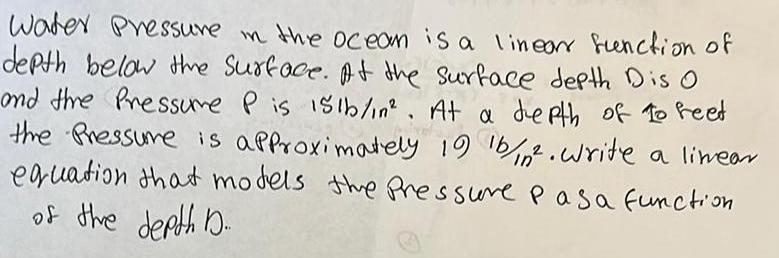 Water pressure in the ocean is a linear function of
depth below the surface. At the surface depth D is 0
and the Pressure P is 15 lb/in². At a depth of 10 feet
the Pressure is approximately 19 lb/in². Write a linear
equation that models the Pressure P as a function
of the depth D.